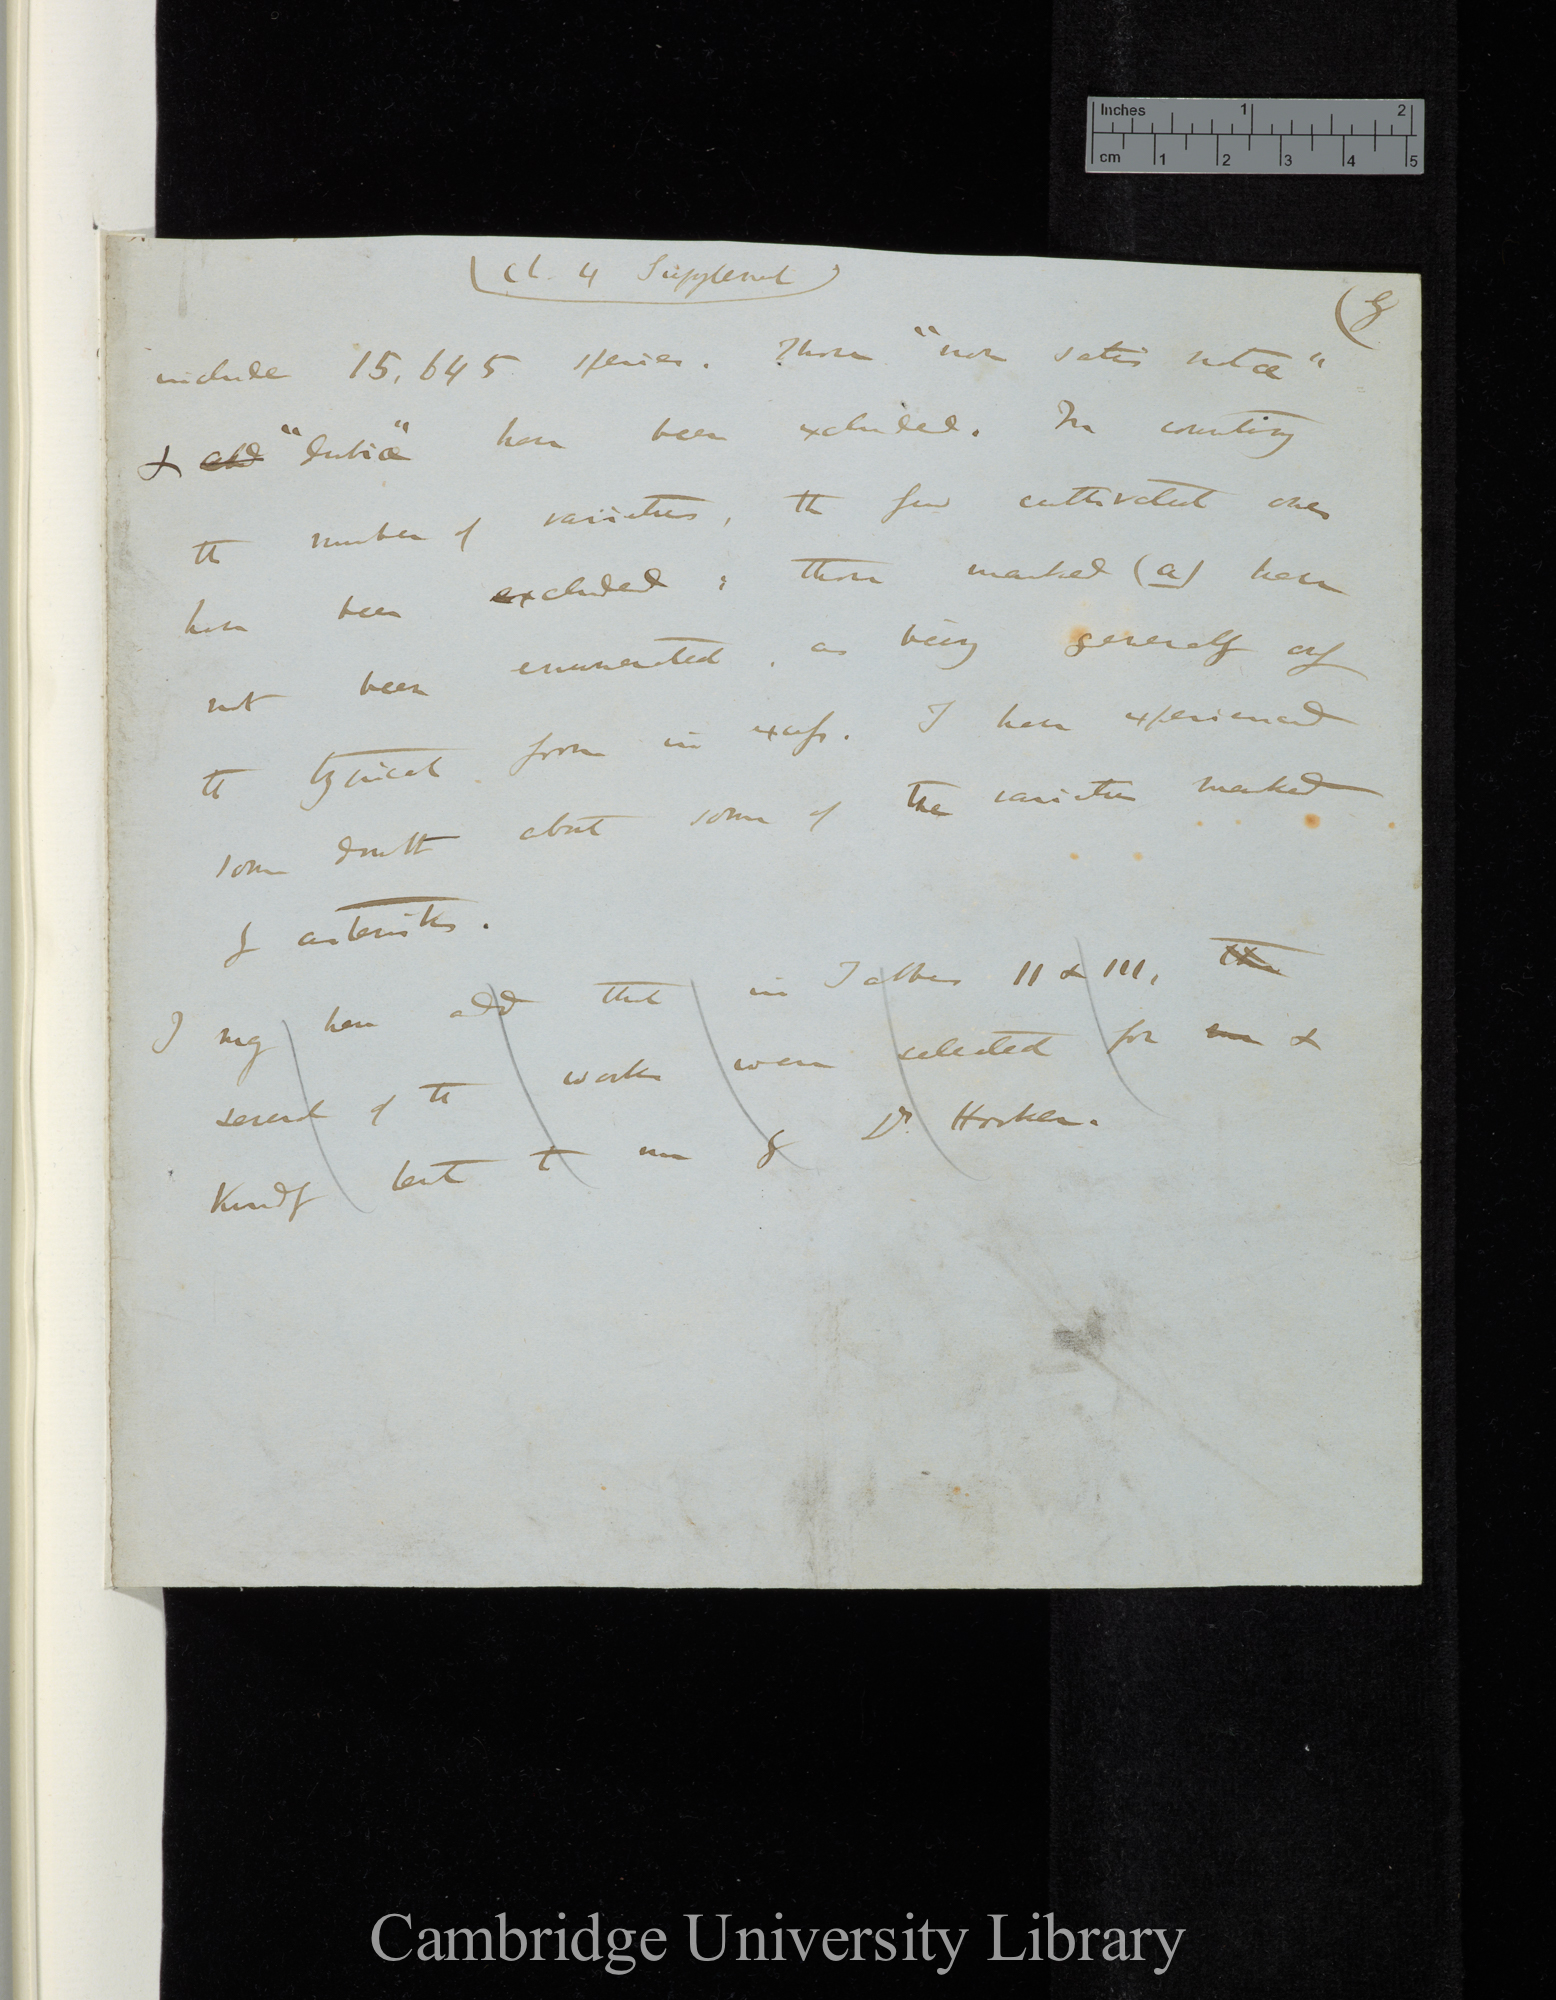 Inches 1 2
cm 1 2 3 4 5
(Ch. 4 Supplement)
(g
include 15,645 species. Those "non satis notæ"
& and "dubiæ" have been excluded. In counting
the number of varieties, the few cultivated ones
have been excluded; those marked (a) have
not been enumerated, as being generally only
the typical form in excess. I have experienced
some doubt about some of the varieties marked
by asterisks.
I may here add that in Tables II & III, the
several of the works were selected for me &
kindly lent to me by Dr. Hooker.
Cambridge University Library